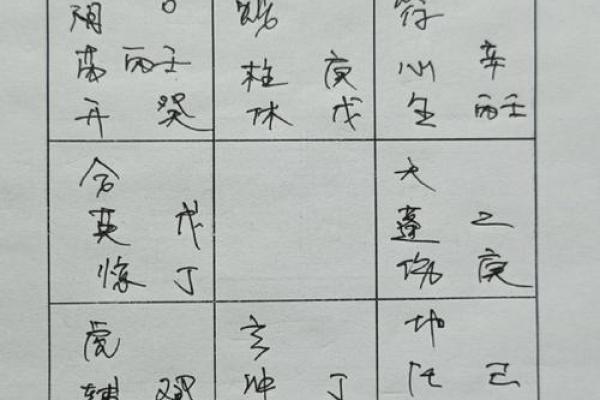 阴 蛇 符
芮 丙壬 柱 庚 心 辛
开 癸 休 戊 生 丙壬
合 天
英 戊 蓬 乙
惊 丁 伤 庚
虎 玄 地
辅 癸 冲 丁 任 己